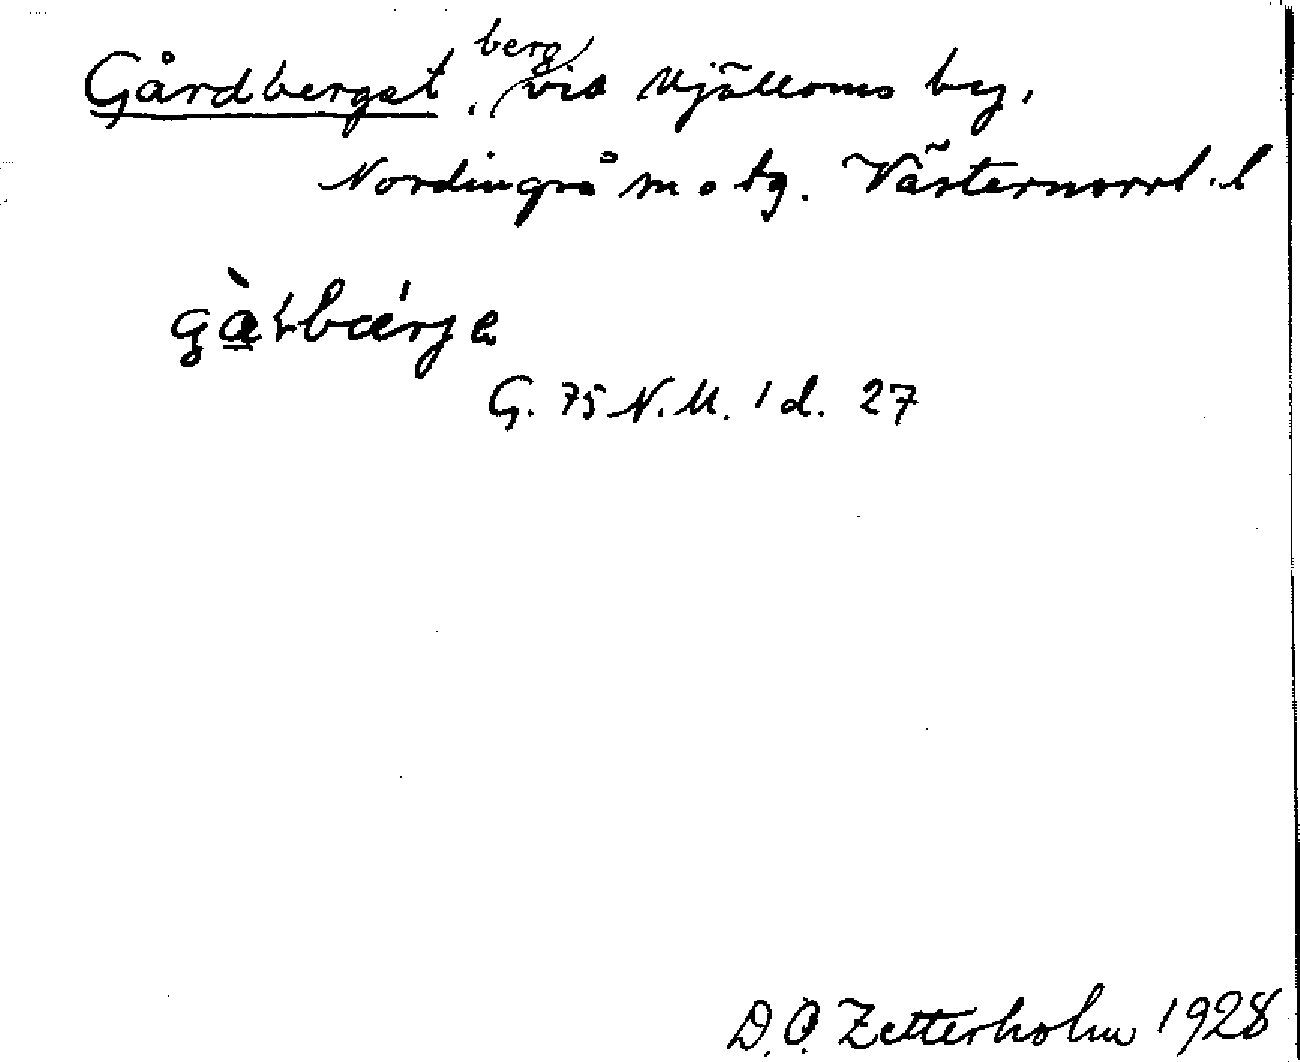 Gårdberget, berg vid Mjälloms by,
Nordingrå sn o tg. Västernorrl. l
G. 75 N.M. 1 d. 27
D. O. Zetterholm 1928